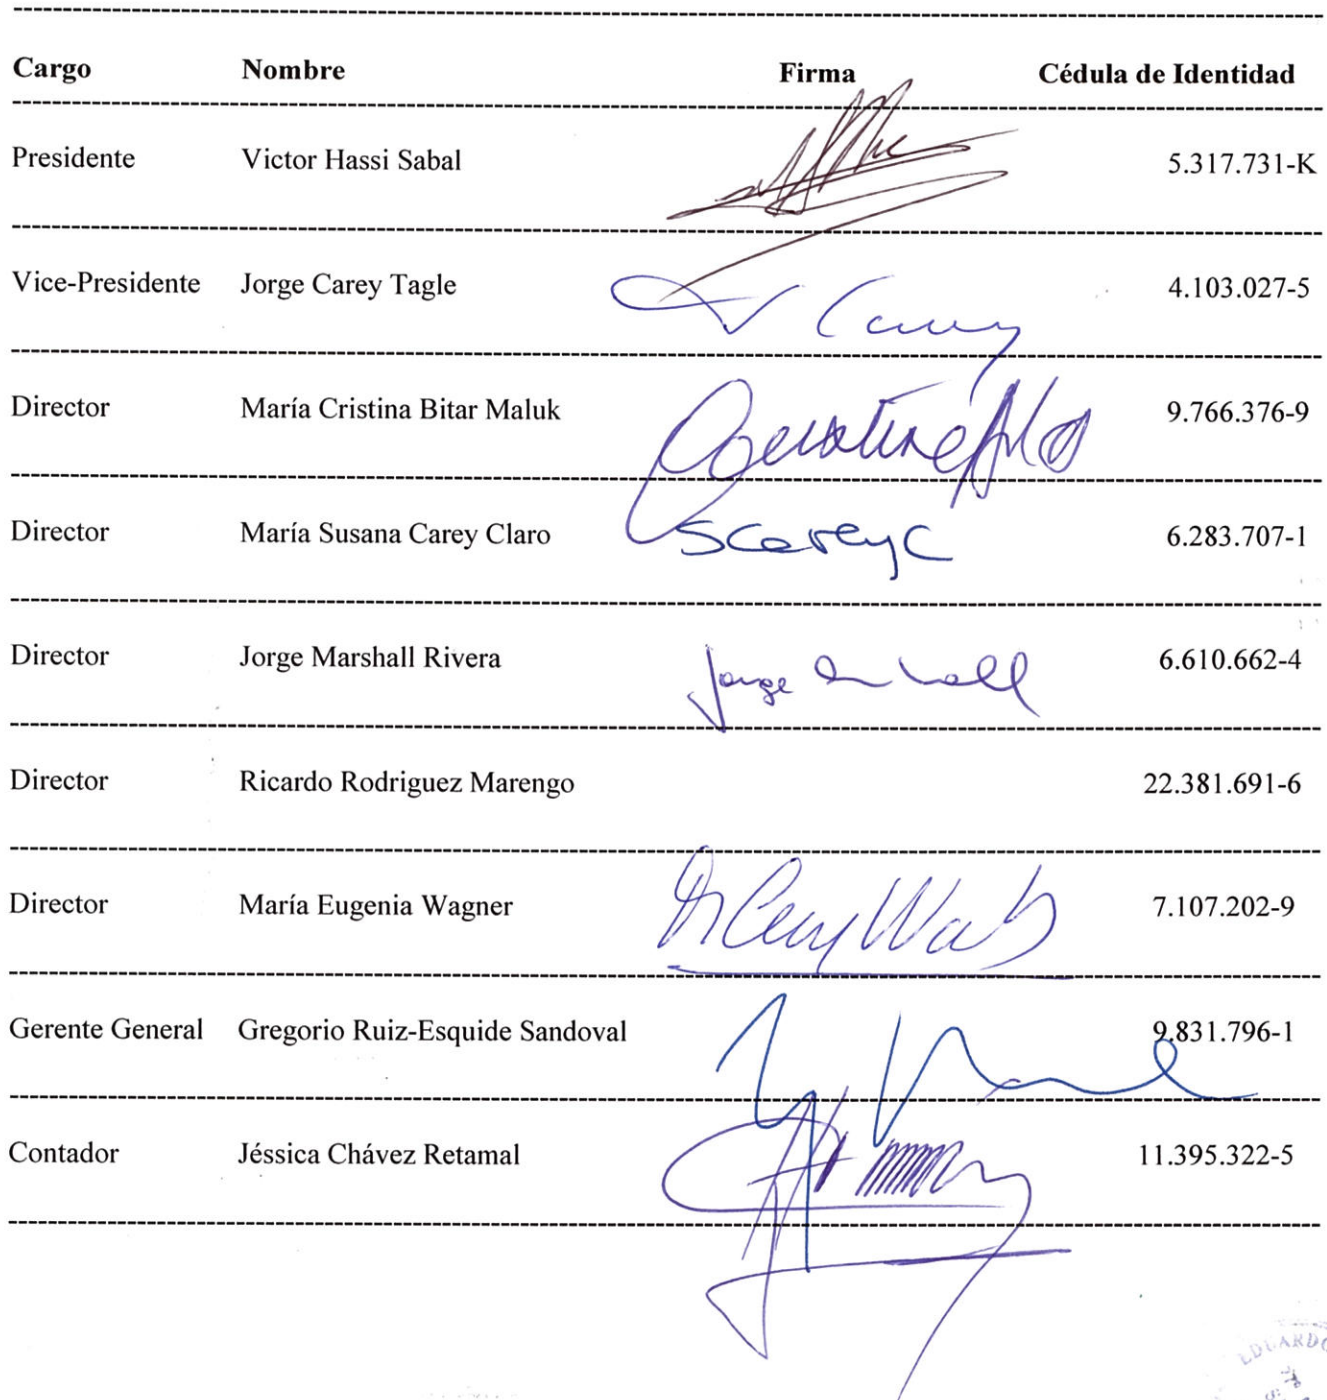 Cargo Nombre Firma Cédula de Identidad
Presidente Victor Hassi Sabal 5.317.731-K
Vice-Presidente Jorge Carey Tagle J Carey 4.103.027-5
Director María Cristina Bitar Maluk 9.766.376-9
Director María Susana Carey Claro SCareyC 6.283.707-1
Director Jorge Marshall Rivera Jorge Marshall 6.610.662-4
Director Ricardo Rodriguez Marengo 22.381.691-6
Director María Eugenia Wagner 7.107.202-9
Gerente General Gregorio Ruiz-Esquide Sandoval 9.831.796-1
Contador Jéssica Chávez Retamal 11.395.322-5
EDUARDO